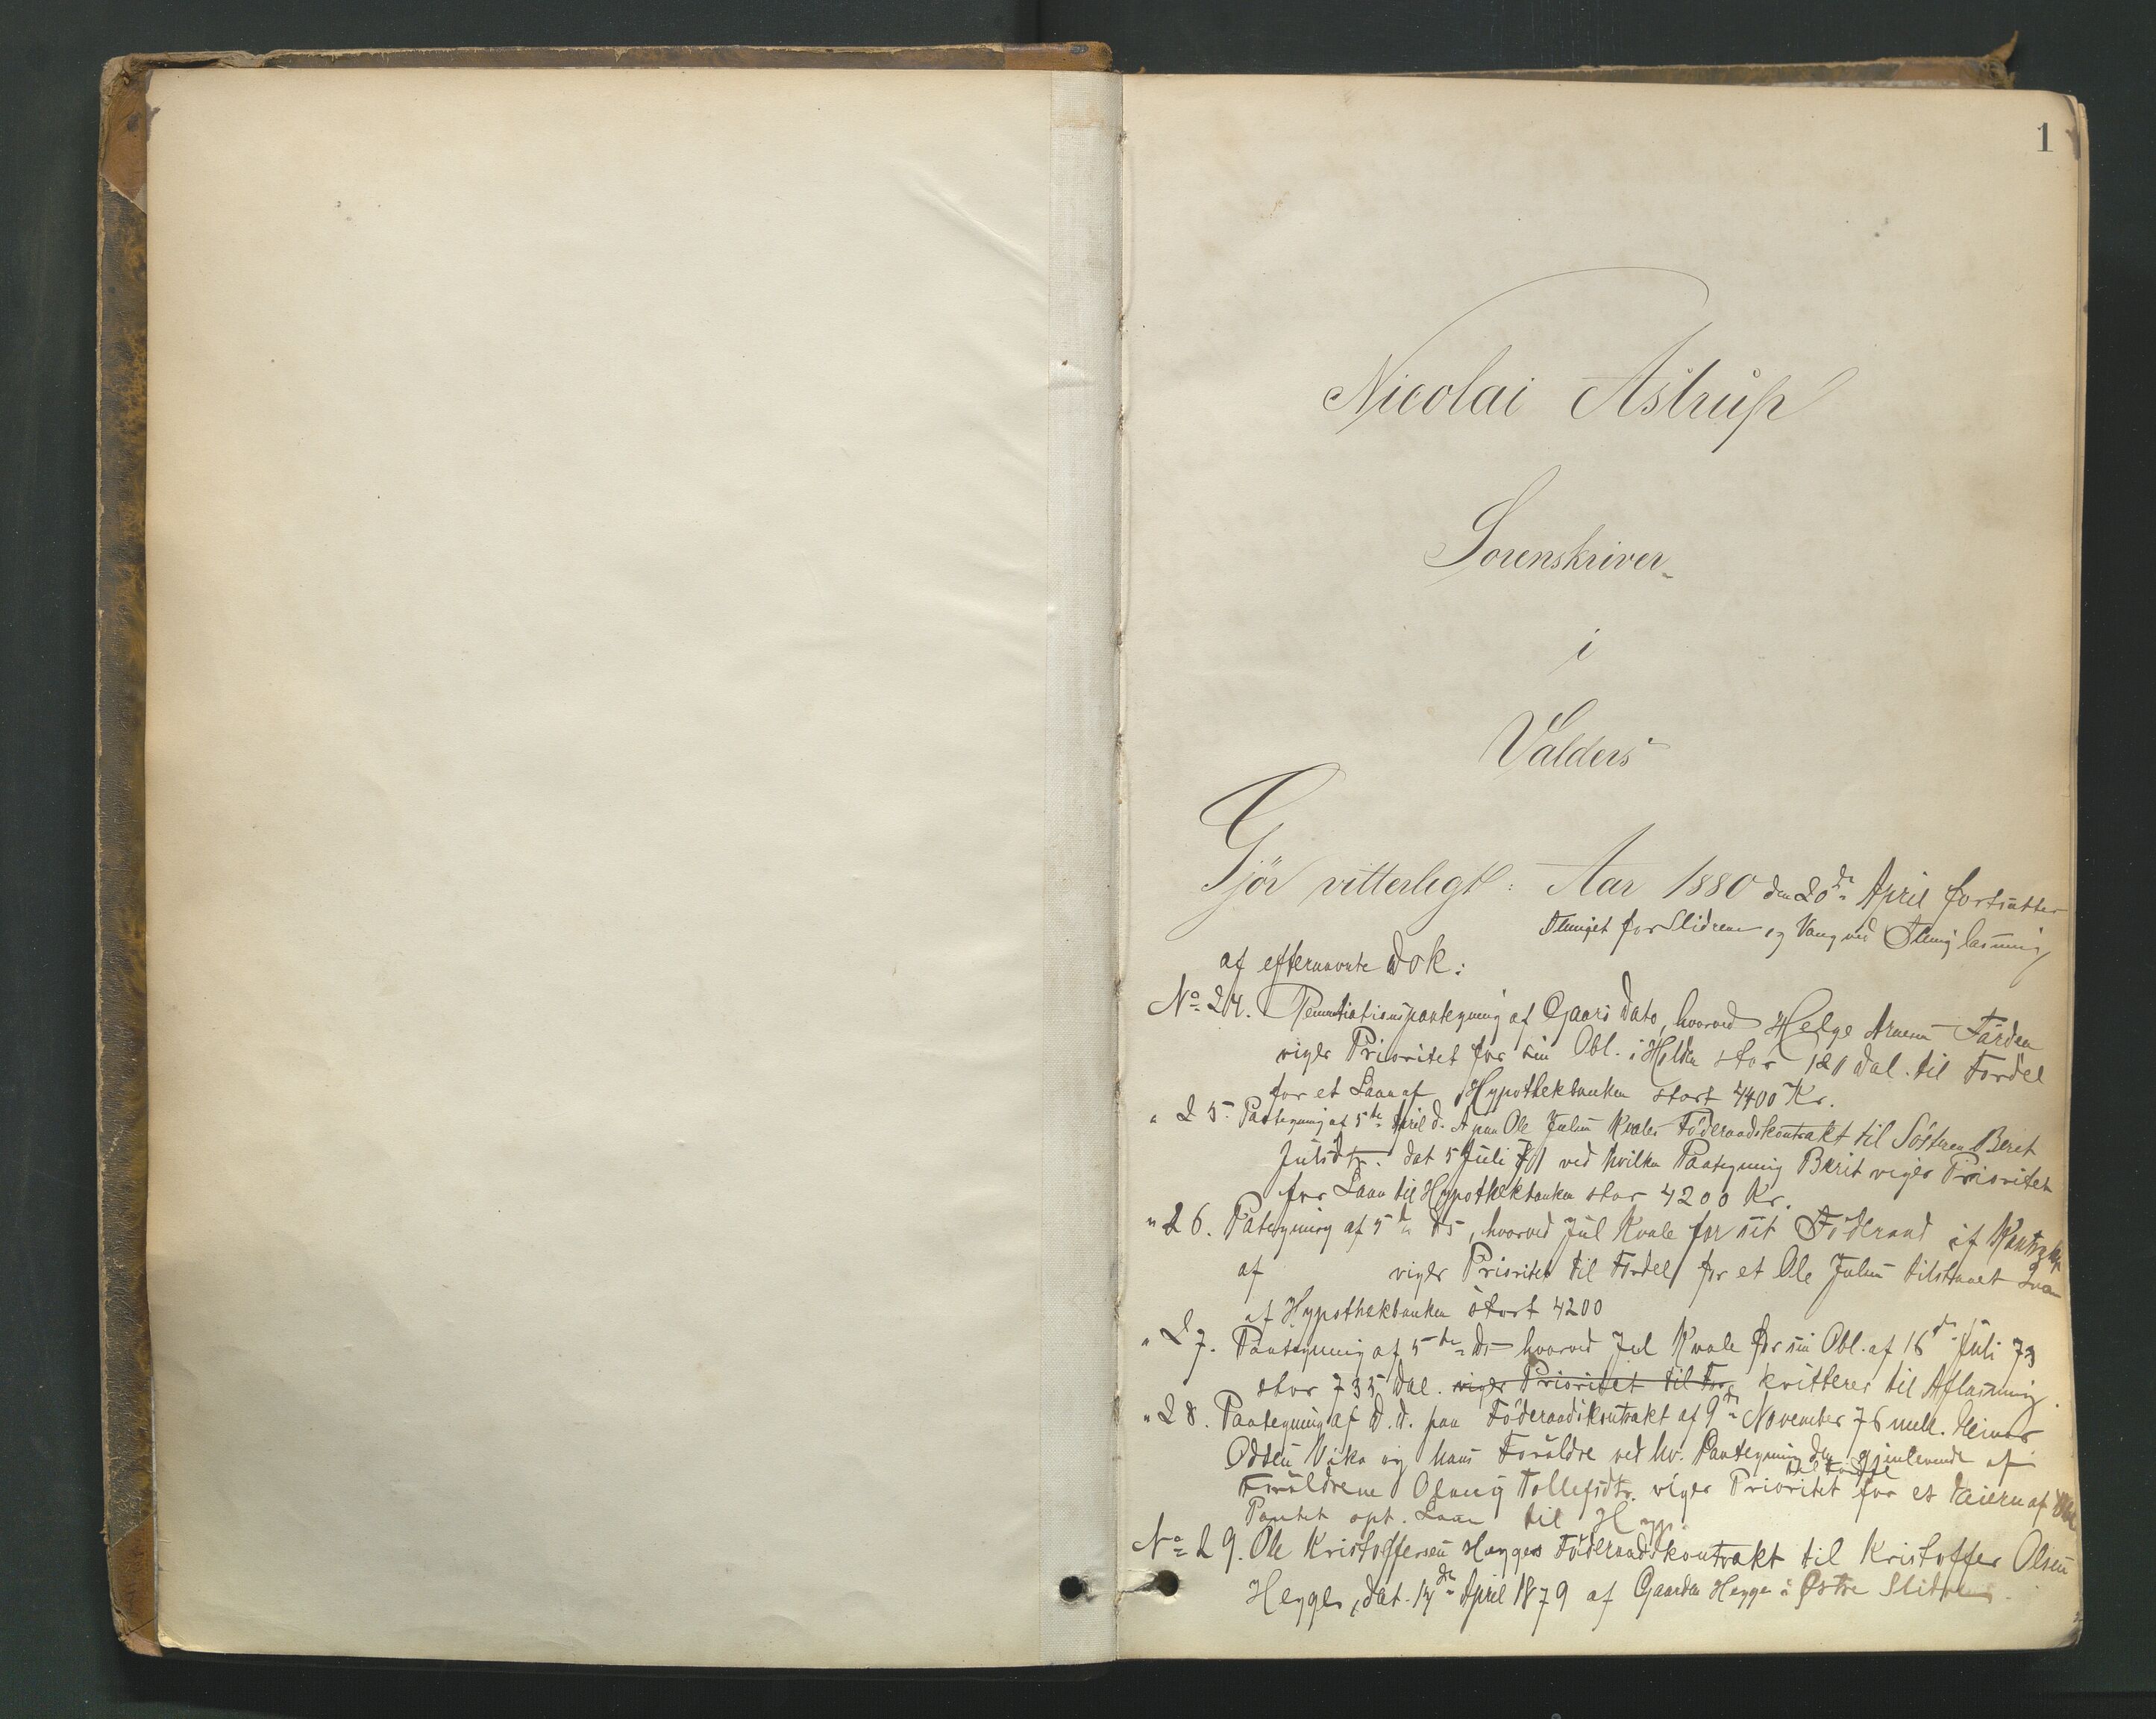 1
Nicolai Astrup
Sorenskriver
i
Valders
Gjör vitterligt: Aar 1880 den 20de April fortsattes
Thinget for Slidrene og Vang ved Thinglæsning
af efternævnte Dok:
No 24. Renuntiationspaategning af Gaars Dato, hvorved Helge Arnesen
viger Prioritet for sin Obl. i stor 120 Dal. til Fordel
for et Laan af Hypothekbanken stort 4400 Kr.
" 25. Paategning af 5te April d. A paa Ole Julsen Kvales Föderaadskontrakt til Söstren Berit
Julsdtr. dat 5 Juli ved hvilken Paategning Berit viger Prioritet
for Laan til Hypothekbanken stor 4200 Kr.
" 26. Pategning af 5te ds, hvorved Jul Kvale for sit Föderaad if Kontrakt
af viger Prioritet til Fordel for et Ole Julsen tilstaaet Laan
af Hypothekbanken stort 4200
" 27. Paategning af 5te ds hvorved Jul Kvale for sin Obl. af 16de Juli 73
stor 735 Dal. viger Prioritet til For kvitterer til Aflæsning.
" 28. Paategning af D. D. paa Föderaadskontrakt af 9de November 76 mell.
Odsen Vika og hans Forældre ved hv. Paategning den gjenlevende af
Forældrene Tollefsdtr. viger Prioritet til Fordel for et af
Pantet opt. Laan til Hyp.
No 29. Ole Kristoffersen Hegges Föderaadskontrakt til Kristoffer Olsen
Hegge, dat. 14de April 1879 af Gaarden Hegge i Østre Slidre.